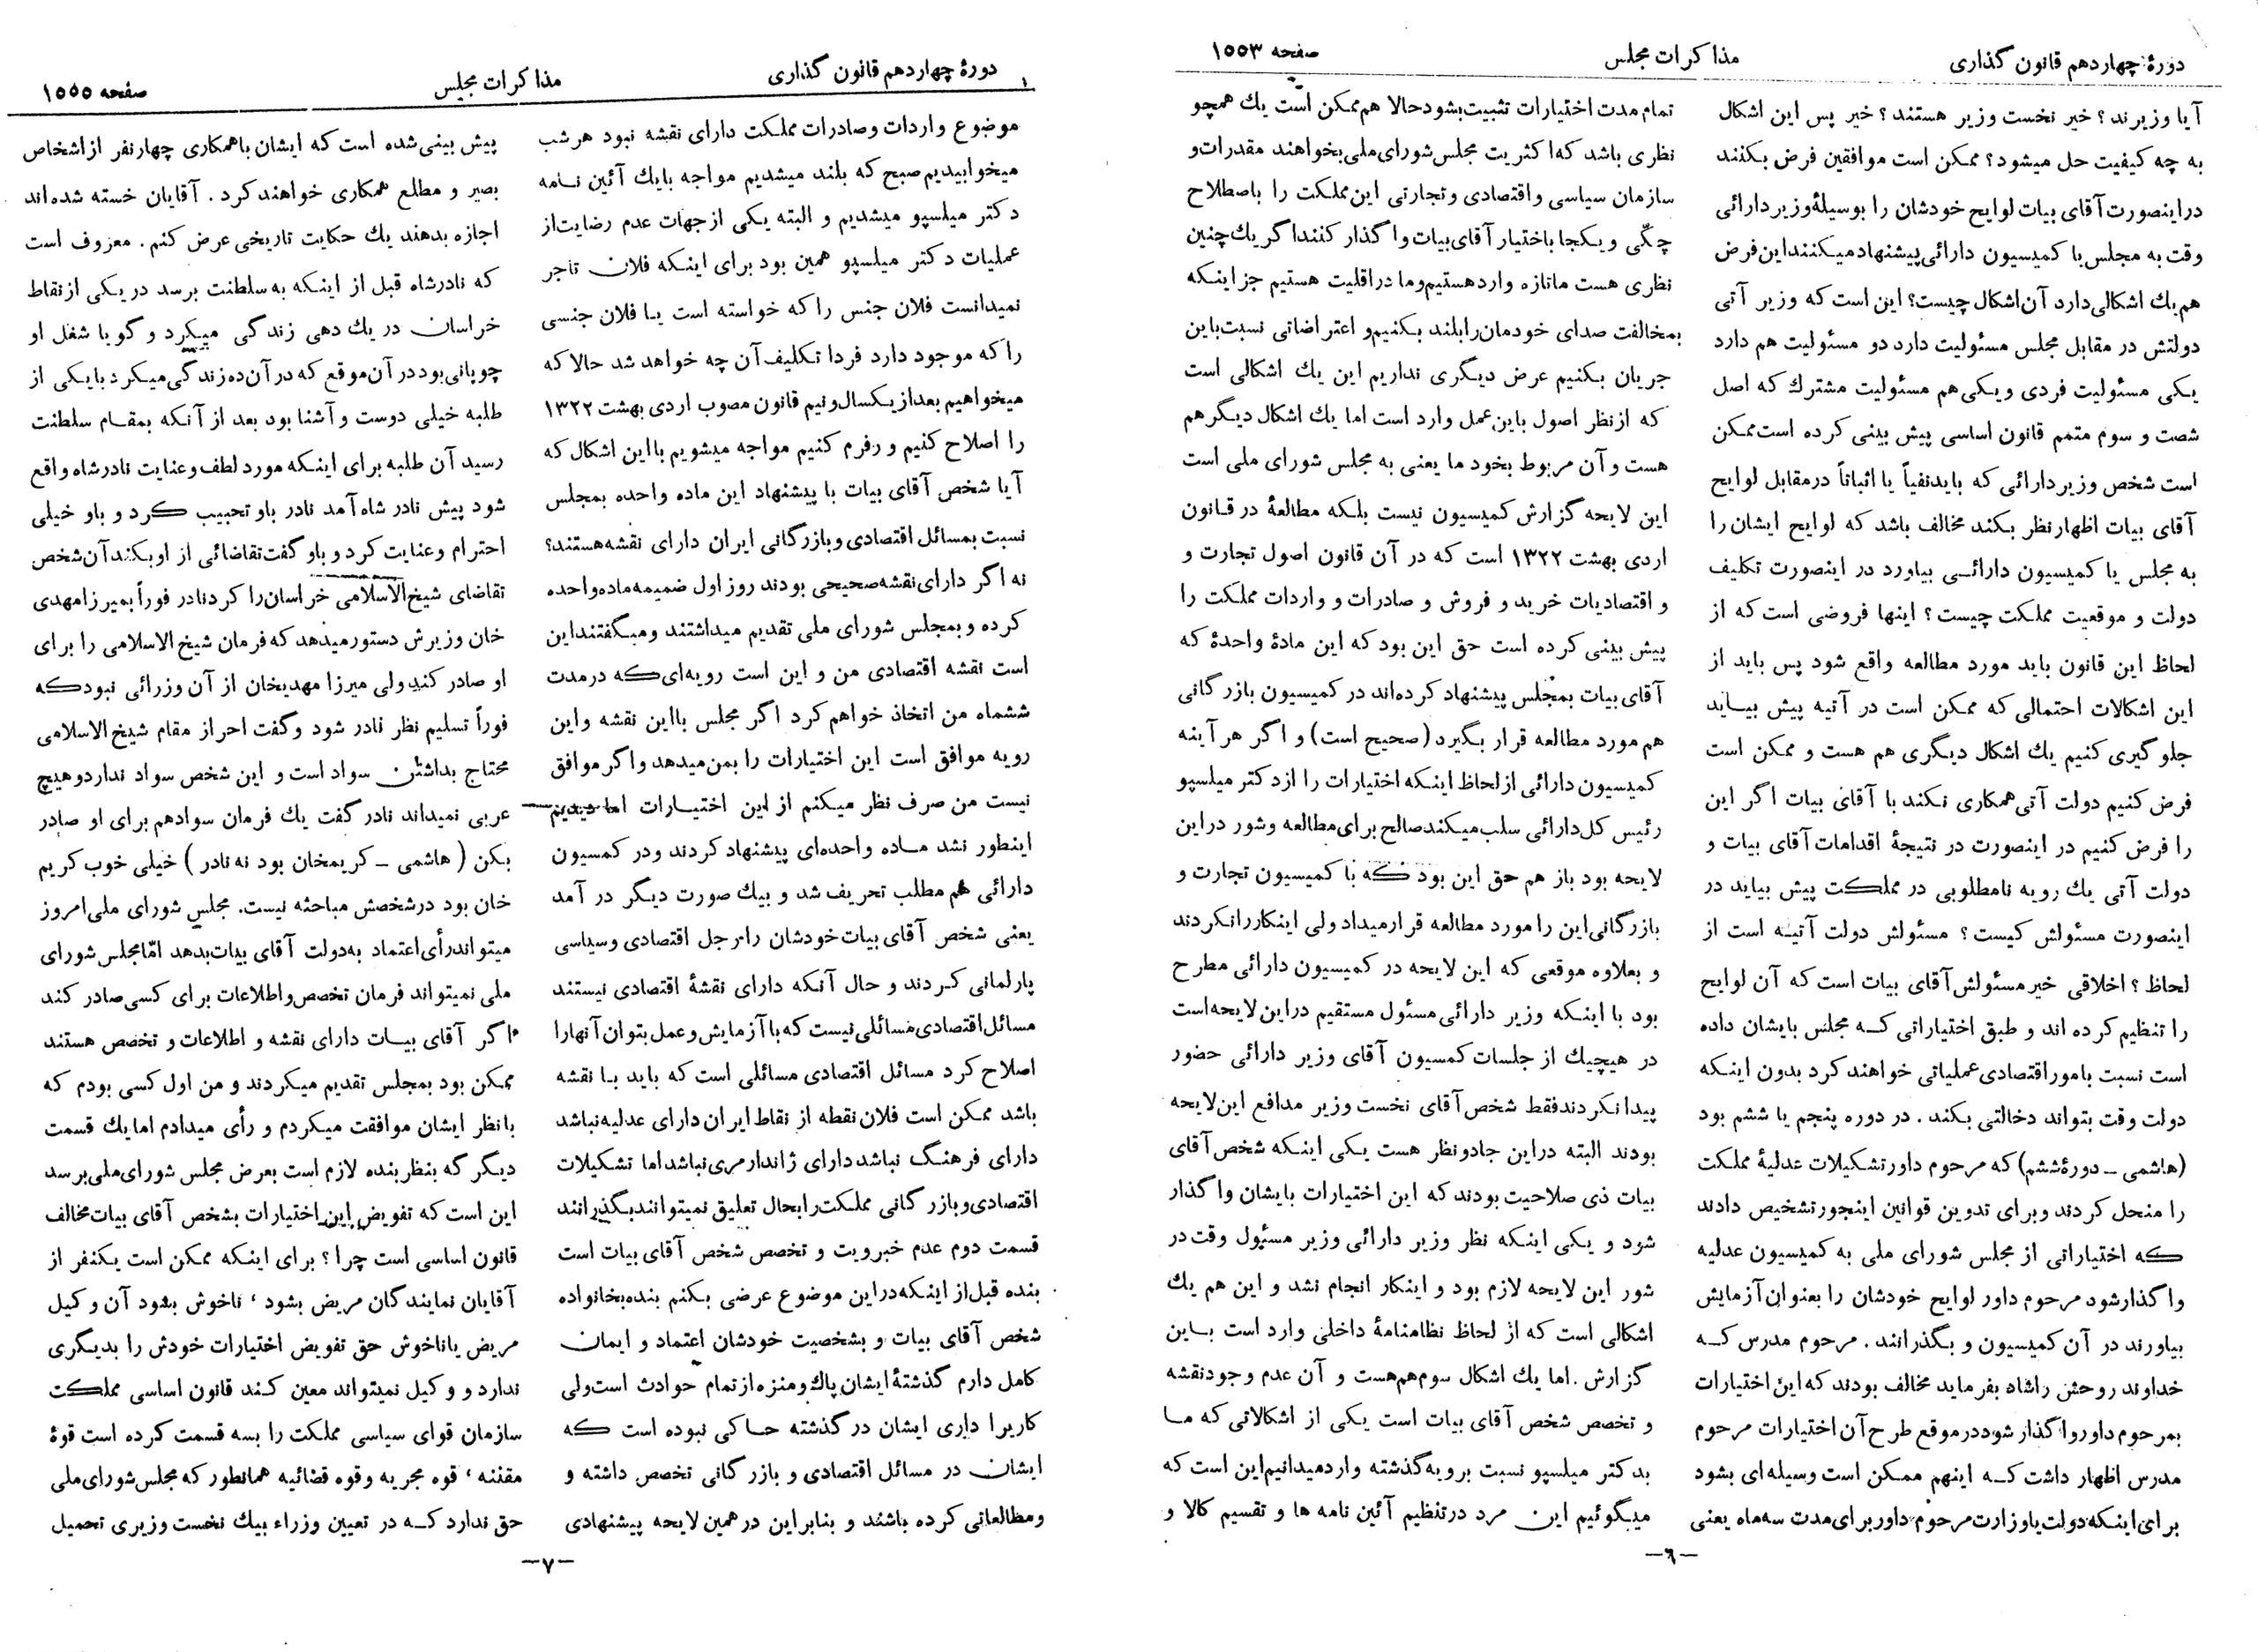 دورهٔ چهاردهم قانون گذاری
مذاکرات مجلس
صفحه ۱۵۵۳
آیا وزیرند؟ خیر نخست وزیر هستند؟ خیر پس این اشکال
به چه کیفیت حل میشود؟ ممکن است موافقین فرض بکنند
دراینصورت آقای بیات لوایح خودشان را بوسیلهٔ وزیر دارائی
وقت به مجلس یا کمیسیون دارائی پیشنهاد میکنند این فرض
هم یك اشکالی دارد آن اشکال چیست؟ این است که وزیر آتی
دولتش در مقابل مجلس مسئولیت دارد دو مسئولیت هم دارد
یکی مسئولیت فردی و یکی هم مسئولیت مشترك که اصل
شصت و سوم متمم قانون اساسی پیش بینی کرده است ممکن
است شخص وزیر دارائی که باید نفیاً یا اثباتاً درمقابل لوایح
آقای بیات اظهار نظر بکند مخالف باشد که لوایح ایشان را
به مجلس یا کمیسیون دارائی بیاورد در اینصورت تکلیف
دولت و موقعیت مملکت چیست؟ اینها فروضی است که از
لحاظ این قانون باید مورد مطالعه واقع شود پس باید از
این اشکالات احتمالی که ممکن است در آتیه پیش بیاید
جلوگیری کنیم یك اشکال دیگری هم هست و ممکن است
فرض کنیم دولت آتی همکاری نکند با آقای بیات اگر این
را فرض کنیم در اینصورت در نتیجهٔ اقدامات آقای بیات و
دولت آتی یك رویه نامطلوبی در مملکت پیش بیاید در
اینصورت مسئولش کیست؟ مسئولش دولت آتیه است از
لحاظ؟ اخلاقی خیر مسئولش آقای بیات است که آن لوایح
را تنظیم کرده اند و طبق اختیاراتی که مجلس بایشان داده
است نسبت بامور اقتصادی عملیاتی خواهند کرد بدون اینکه
دولت وقت بتواند دخالتی بکند. در دوره پنجم یا ششم بود
(هاشمی ـ دورهٔ ششم) که مرحوم داور تشکیلات عدلیهٔ مملکت
را منحل کردند و برای تدوین قوانین اینجور تشخیص دادند
که اختیاراتی از مجلس شورای ملی به کمیسیون عدلیه
واگذار شود مرحوم داور لوایح خودشان را بعنوان آزمایش
بیاورند در آن کمیسیون و بگذرانند. مرحوم مدرس که
خداوند روحش را شاد بفرماید مخالف بودند که این اختیارات
بمرحوم داور واگذار شود درموقع طرح آن اختیارات مرحوم
مدرس اظهار داشت که اینهم ممکن است وسیله‌ای بشود
برای اینکه دولت یا وزارت مرحوم داور برای مدت سه ماه یعنی
تمام مدت اختیارات تثبیت بشود حالا هم ممکن است یك همچو
نظری باشد که اکثریت مجلس شورای ملی بخواهند مقدرات و
سازمان سیاسی و اقتصادی و تجارتی این مملکت را باصطلاح
چکّی و یکجا باختیار آقای بیات واگذار کنند اگر یك چنین
نظری هست ما تازه وارد هستیم و ما در اقلیت هستیم جز اینکه
بمخالفت صدای خودمان را بلند بکنیم و اعتراضاتی نسبت باین
جریان بکنیم عرض دیگری نداریم این یك اشکالی است
که از نظر اصول باین عمل وارد است اما یك اشکال دیگر هم
هست و آن مربوط بخود ما یعنی به مجلس شورای ملی است
این لایحه گزارش کمیسیون نیست بلکه مطالعهٔ در قانون
اردی بهشت ۱۳۲۲ است که در آن قانون اصول تجارت و
و اقتصادیات خرید و فروش و صادرات و واردات مملکت را
پیش بینی کرده است حق این بود که این مادهٔ واحدهٔ که
آقای بیات بمجلس پیشنهاد کرده‌اند در کمیسیون بازرگانی
هم مورد مطالعه قرار بگیرد (صحیح است) و اگر هر آینه
کمیسیون دارائی از لحاظ اینکه اختیارات را از دکتر میلسپو
رئیس کل دارائی سلب میکند صالح برای مطالعه و شور در این
لایحه بود باز هم حق این بود که با کمیسیون تجارت و
بازرگانی این را مورد مطالعه قرار میداد ولی اینکار را نکردند
و بعلاوه موقعی که این لایحه در کمیسیون دارائی مطرح
بود با اینکه وزیر دارائی مسئول مستقیم دراین لایحه است
در هیچیك از جلسات کمسیون آقای وزیر دارائی حضور
پیدا نکردند فقط شخص آقای نخست وزیر مدافع این لایحه
بودند البته در این جا دو نظر هست یکی اینکه شخص آقای
بیات ذی صلاحیت بودند که این اختیارات بایشان واگذار
شود و یکی اینکه نظر وزیر دارائی وزیر مسئول وقت در
شور این لایحه لازم بود و اینکار انجام نشد و این هم یك
اشکالی است که از لحاظ نظامنامهٔ داخلی وارد است باین
گزارش. اما یك اشکال سوم هم هست و آن عدم وجود نقشه
و تخصص شخص آقای بیات است یکی از اشکالاتی که ما
بدکتر میلسپو نسبت برویه گذشته وارد میدانیم این است که
میگوئیم این مرد درتنظیم آئین نامه ها و تقسیم کالا و
ـ٦ـ
دورهٔ چهاردهم قانون گذاری
مذاکرات مجلس
صفحه ۱۵۵۵
موضوع واردات و صادرات مملکت دارای نقشه نبود هر شب
میخوابیدیم صبح که بلند میشدیم مواجه بایك آئین نامه
دکتر میلسپو میشدیم و البته یکی از جهات عدم رضایت از
عملیات دکتر میلسپو همین بود برای اینکه فلان تاجر
نمیدانست فلان جنس را که خواسته است یا فلان جنسی
را که موجود دارد فردا تکلیف آن چه خواهد شد حالا که
میخواهیم بعد از یکسال و نیم قانون مصوب اردی بهشت ۱۳۲۲
را اصلاح کنیم و رفرم کنیم مواجه میشویم بااین اشکال که
آیا شخص آقای بیات با پیشنهاد این ماده واحده بمجلس
نسبت بمسائل اقتصادی و بازرگانی ایران دارای نقشه هستند؟
نه اگر دارای نقشه صحیحی بودند روز اول ضمیمه ماده واحده
کرده و بمجلس شورای ملی تقدیم میداشتند و میگفتند این
است نقشه اقتصادی من و این است رویه‌ای که در مدت
ششماه من اتخاذ خواهم کرد اگر مجلس بااین نقشه واین
رویه موافق است این اختیارات را بمن میدهد و اگر موافق
نیست من صرف نظر میکنم از این اختیارات اما دیدیم
اینطور نشد ماده واحده‌ای پیشنهاد کردند و در کمسیون
دارائی هم مطلب تحریف شد و بیك صورت دیگر در آمد
یعنی شخص آقای بیات خودشان را رجل اقتصادی و سیاسی
پارلمانی کردند و حال آنکه دارای نقشهٔ اقتصادی نیستند
مسائل اقتصادی مسائلی نیست که با آزمایش و عمل بتوان آنها را
اصلاح کرد مسائل اقتصادی مسائلی است که باید با نقشه
باشد ممکن است فلان نقطه از نقاط ایران دارای عدلیه نباشد
دارای فرهنگ نباشد دارای ژاندارمری نباشد اما تشکیلات
اقتصادی و بازرگانی مملکت را بحال تعلیق نمیتوانند بگذرانند
قسمت دوم عدم خبرویت و تخصص شخص آقای بیات است
بنده قبل از اینکه دراین موضوع عرضی بکنم بنده بخانواده
شخص آقای بیات و بشخصیت خودشان اعتماد و ایمان
کامل دارم گذشتهٔ ایشان پاك و منزه از تمام حوادث است ولی
کاریرا داری ایشان در گذشته حاکی نبوده است که
ایشان در مسائل اقتصادی و بازرگانی تخصص داشته و
و مطالعاتی کرده باشند و بنابراین در همین لایحه پیشنهادی
پیش بینی شده است که ایشان باهمکاری چهار نفر از اشخاص
بصیر و مطلع همکاری خواهند کرد. آقایان خسته شده‌اند
اجازه بدهند یك حکایت تاریخی عرض کنم. معروف است
که نادرشاه قبل از اینکه به سلطنت برسد در یکی از نقاط
خراسان در یك دهی زندگی میکرد و گویا شغل او
چوپانی بود در آن موقع که در آن ده زندگی میکرد بایکی از
طلبه خیلی دوست و آشنا بود بعد از آنکه بمقام سلطنت
رسید آن طلبه برای اینکه مورد لطف و عنایت نادرشاه واقع
شود پیش نادر شاه آمد نادر باو تحبیب کرد و باو خیلی
احترام و عنایت کرد و باو گفت تقاضائی از او بکند آن شخص
تقاضای شیخ الاسلامی خراسان را کرد نادر فوراً بمیرزا مهدی
خان وزیرش دستور میدهد که فرمان شیخ الاسلامی را برای
او صادر کند ولی میرزا مهدیخان از آن وزرائی نبود که
فوراً تسلیم نظر نادر شود و گفت احراز مقام شیخ الاسلامی
محتاج بداشتن سواد است و این شخص سواد ندارد و هیچ
عربی نمیداند نادر گفت یك فرمان سواد هم برای او صادر
بکن (هاشمی ـ کریمخان بود نه نادر) خیلی خوب کریم
خان بود در شخصش مباحثه نیست. مجلس شورای ملی امروز
میتواند رأی اعتماد به دولت آقای بیات بدهد امّا مجلس شورای
ملی نمیتواند فرمان تخصص و اطلاعات برای کسی صادر کند
اگر آقای بیات دارای نقشه و اطلاعات و تخصص هستند
ممکن بود بمجلس تقدیم میکردند و من اول کسی بودم که
با نظر ایشان موافقت میکردم و رأی میدادم اما یك قسمت
دیگر که بنظر بنده لازم است بعرض مجلس شورای ملی برسد
این است که تفویض این اختیارات بشخص آقای بیات مخالف
قانون اساسی است چرا؟ برای اینکه ممکن است یکنفر از
آقایان نمایندگان مریض بشود، ناخوش بشود آن وکیل
مریض یا ناخوش حق تفویض اختیارات خودش را بدیگری
ندارد و وکیل نمیتواند معین کند قانون اساسی مملکت
سازمان قوای سیاسی مملکت را بسه قسمت کرده است قوهٔ
مقننه، قوه مجریه و قوه قضائیه همانطور که مجلس شورای ملی
حق ندارد که در تعیین وزراء بیك نخست وزیری تحمیل
ـ۷ـ